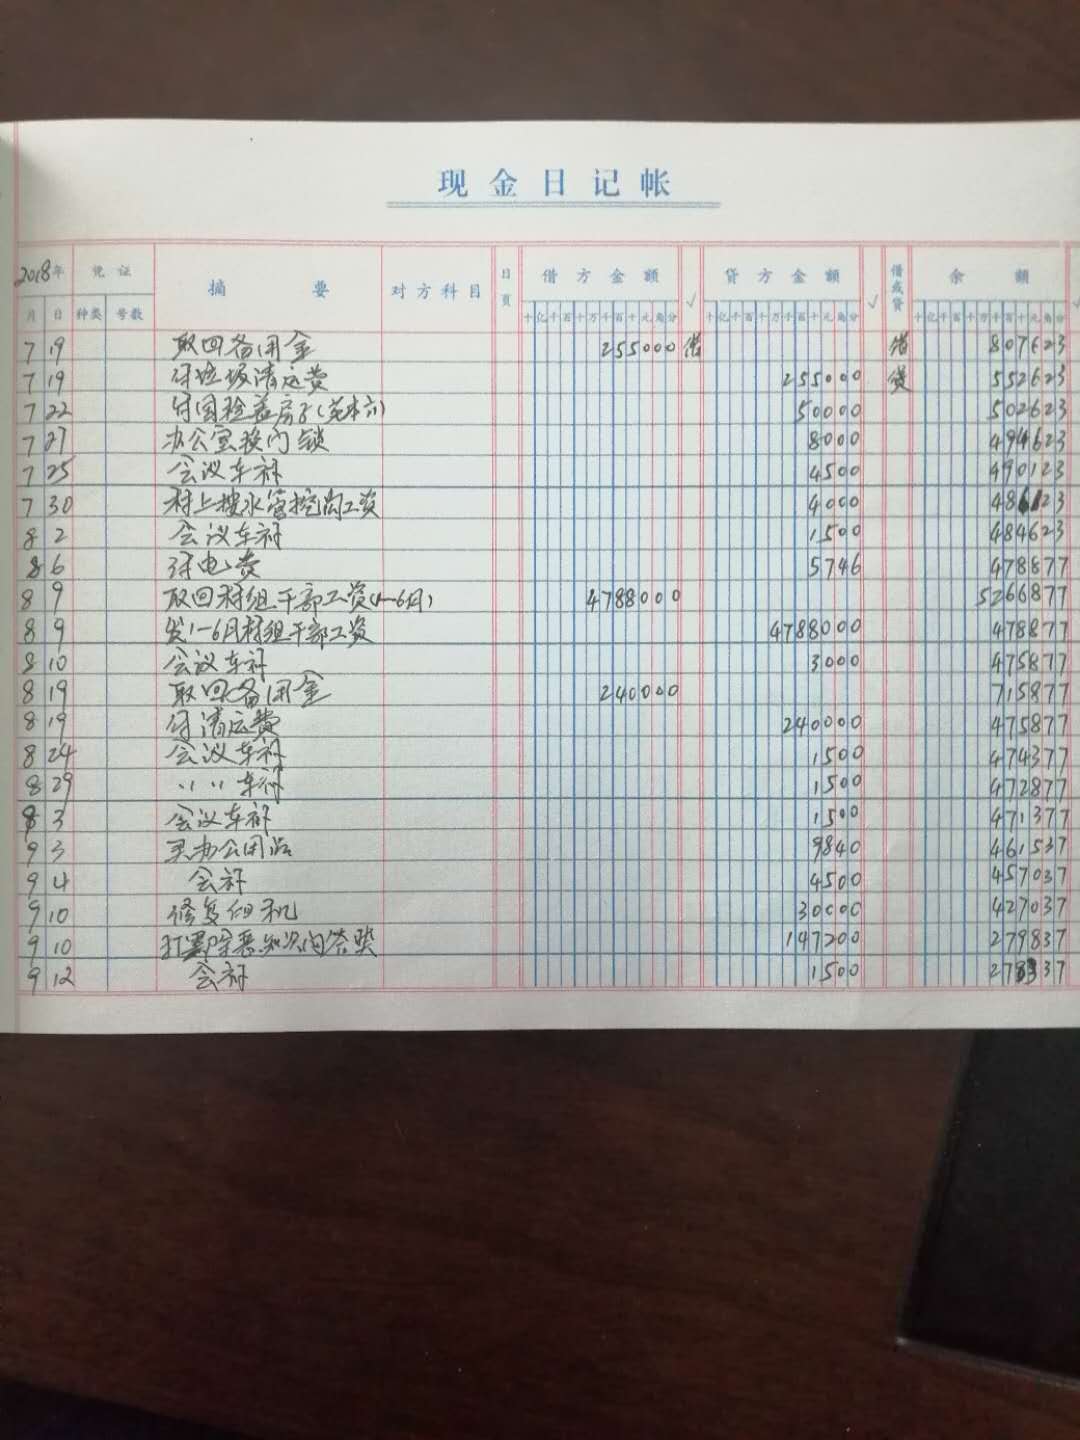 现金日记帐
2018年 凭证 摘要 对方科目 日页 借方金额 √ 贷方金额 √ 借或贷 余额 √
月 日 种类 号数 十亿千百十万千百十元角分 十亿千百十万千百十元角分 十亿千百十万千百十元角分
7 19 取回备用金 255000 借 借 807623
7 19 付垃圾清运费 255000 贷 552623
7 22 付国检盖房子 50000 502623
7 27 办公室换门锁 8000 494623
7 25 会议车补 4500 490123
7 30 村上接水管挖沟工资 4000 486123
8 2 会议车补 1500 484623
8 6 付电费 5746 478877
8 9 取回村组干部工资(1-6月) 4788000 5266877
8 9 发1-6月村组干部工资 4788000 478877
8 10 会议车补 3000 475877
8 19 取回备用金 240000 715877
8 19 付清运费 240000 475877
8 24 会议车补 1500 474377
8 29 〃 〃 车补 1500 472877
9 3 会议车补 1500 471377
9 3 买办公用品 9840 461537
9 4 会补 4500 457037
9 10 修复印机 30000 427037
9 10 扫黑除恶知识问答奖 147200 279837
9 12 会补 1500 278337